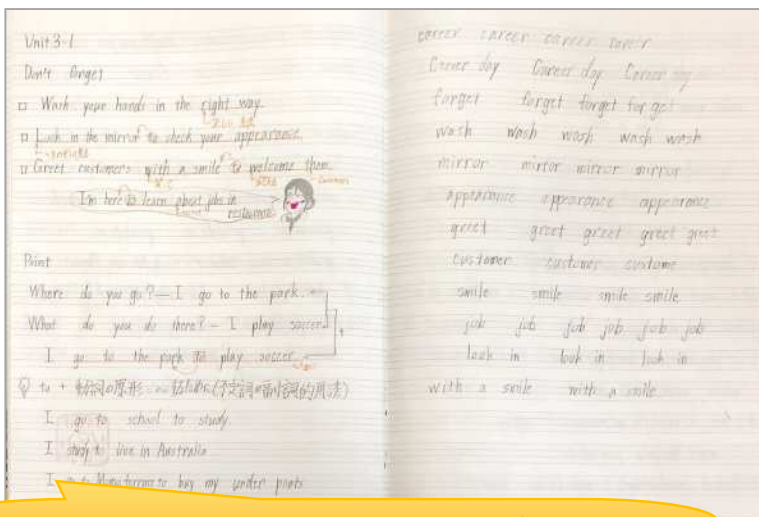 Unit 3-1
Don't forget
□ Wash your hands in the right way.
□ Look in the mirror to check your appearance.
□ Greet customers with a smile to welcome them.
I'm here to learn about jobs in
restaurants
Point
Where do you go? — I go to the park.
What do you do there? — I play soccer.
I go to the park to play soccer.
to + 動詞の原形 (不定詞の副詞的用法)
I go to school to study.
I study to live in Australia
to buy my under pants
career career career career
Career day Career day Career day
forget forget forget forget
wash wash wash wash wash
mirror mirror mirror mirror
appearance appearance appearance
greet greet greet greet greet
customer customer custome
smile smile smile smile
job job job job job job
look in look in look in
with a smile with a smile